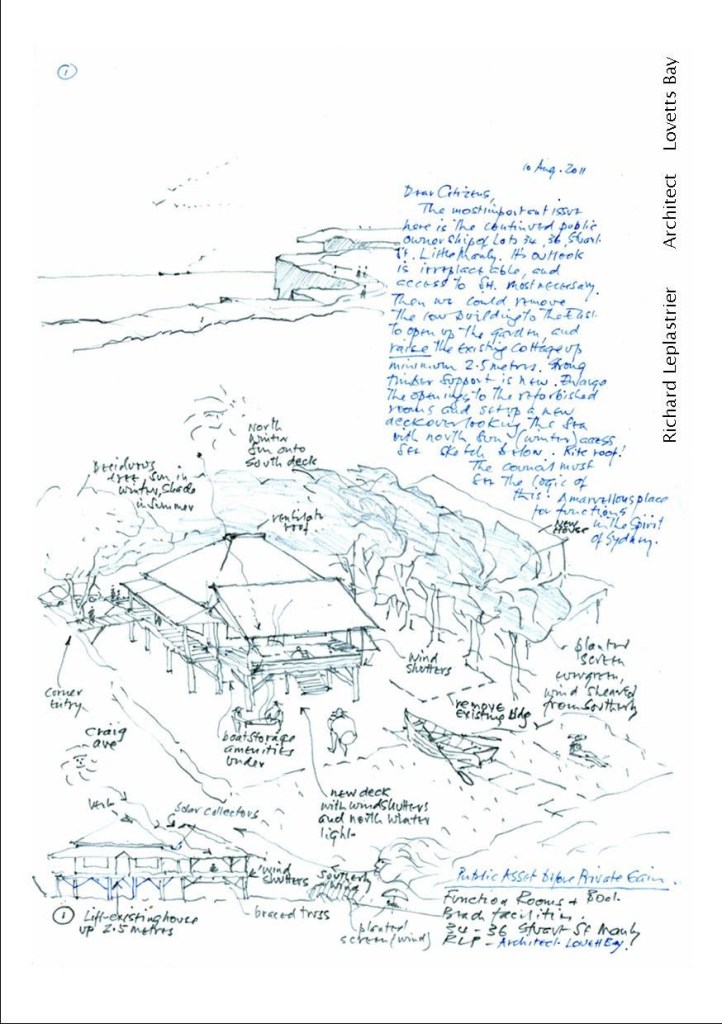 1
10 Aug. 2011
Richard Leplastrier Architect Lovetts Bay
Dear Citizens,
The most important issue
here is the continued public
ownership of Lots 34, 36 Stuart
St. Little Manly. Its outlook
is irreplaceable, and
access to St. most necessary.
Then we could remove
the low building to the East
to open up the garden, and
raise the existing cottage up
minimum 2.5 metres. Strong
timber support is new. Enlarge
the openings to the refurbished
rooms and set up a new
deck overlooking the sea
with north sun (winter) access
See sketch below. Kite roof!
The council must
see the logic of
this! A marvellous place
for functions
in the spirit
of Sydney.
North
winter
sun onto
south deck
Deciduous
tree, sun in
winter, shade
in summer
ventilate
roof
New
House
wind
shutters
planted
screen
evergreen,
wind sheared
from southerly
corner
entry
remove
existing bldg
Craig
Ave
boat storage
amenities
under
new deck
with wind shutters
and north winter
light
Vent
Solar collectors
wind
shutters
Southerly
wind
1 Lift existing house
up 2.5 metres
braced truss
planted
screen (wind)
Public Asset Before Private Gain.
Function Rooms +
facilities.
34 - 36 Stuart St Manly
RLP - Architect. Lovett Bay!